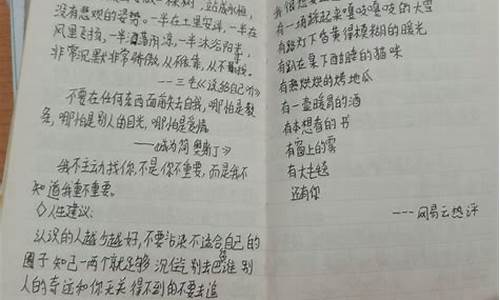 没有悲欢的姿势。一半在土里安详,一半在
风里飞扬,一半洒落阴凉,一半沐浴阳光,
非常沉默非常骄傲,从不依靠,从不寻找。
---三毛《说给自己听》
不要在任何东西面前失去自我,哪怕是教
条,哪怕是别人的目光,哪怕是爱情
——《成为简·奥斯丁》
我不主动找你,不是你不重要,而是我不
知道我重不重要。
◇人生建议:
认识的人越少越好,不要沾染不适合自己的
圈子 知己一两个就足够 沉住气别去巴结谁 别
人的幸运和你无关 得不到的不要去追
有一场踩起来嘎吱嘎吱的大雪
有路灯下昏黄得模糊的暖光
有趴在桌下酣睡的猫咪
有热烘烘的烤地瓜
有一壶暖胃的酒
有本想看的书
有窗上的雾
有大毛毯
还有你
---网易云热评